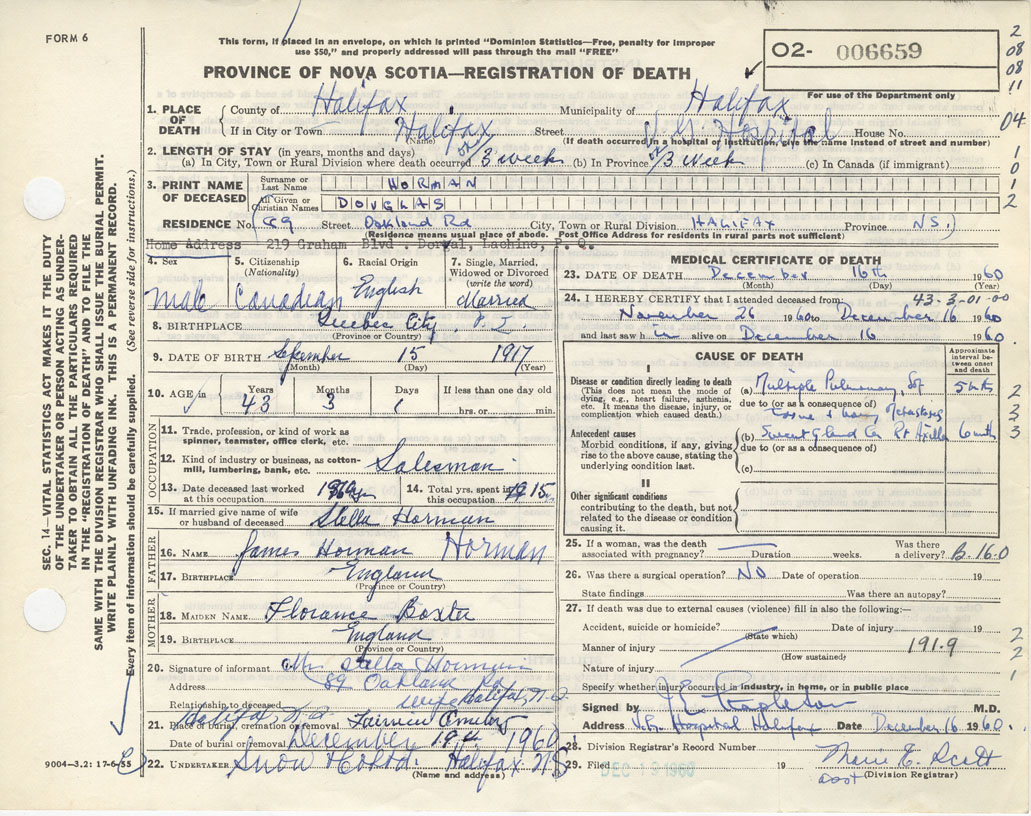 FORM 6
This form, if placed in an envelope, on which is printed "Dominion Statistics—Free, penalty for improper
use $50," and properly addressed will pass through the mail "FREE"
PROVINCE OF NOVA SCOTIA—REGISTRATION OF DEATH
02- 006659
For use of the Department only
2
08
08
11
04
1
0
1
2
1. PLACE OF DEATH County of Halifax Municipality of Halifax
If in City or Town Halifax Street V. G. Hospital House No.
(Name) (If death occurred in a hospital or institution, give the name instead of street and number)
2. LENGTH OF STAY (in years, months and days)
(a) In City, Town or Rural Division where death occurred 3 week (b) In Province 3 week (c) In Canada (if immigrant)
3. PRINT NAME OF DECEASED
Surname or Last Name HORMAN
All Given or Christian Names DOUGLAS
RESIDENCE No. 89 Street Oakland Rd City, Town or Rural Division HALIFAX Province NS.)
(Residence means usual place of abode. Post Office Address for residents in rural parts not sufficient)
Home Address 219 Graham Blvd. Dorval, Lachine, P. Q.
4. Sex Male
5. Citizenship (Nationality) Canadian
6. Racial Origin English
7. Single, Married, Widowed or Divorced (write the word) Married
8. BIRTHPLACE Quebec City, P.Q.
(Province or Country)
9. DATE OF BIRTH September 15 1917
(Month) (Day) (Year)
10. AGE in Years 43 Months 3 Days 1 If less than one day old
hrs. or min.
OCCUPATION
11. Trade, profession, or kind of work as spinner, teamster, office clerk, etc.
12. Kind of industry or business, as cotton-mill, lumbering, bank, etc. Salesman
13. Date deceased last worked at this occupation 1960
14. Total yrs. spent in this occupation 15
15. If married give name of wife or husband of deceased Stella Horman
FATHER
16. NAME James Horman Horman
17. BIRTHPLACE England
(Province or Country)
MOTHER
18. MAIDEN NAME Florance Boxter
19. BIRTHPLACE England
(Province or Country)
20. Signature of informant Mrs Stella Horman
Address 89 Oakland Rd
Halifax, N.S
Relationship to deceased wife
21. Place of burial, cremation or removal Halifax, N.S Fairview Cemetery
Date of burial or removal December 19th 1960
22. UNDERTAKER Snow & Co Ltd. Halifax N.S
(Name and address)
9004—3.2: 17-6-55
MEDICAL CERTIFICATE OF DEATH
23. DATE OF DEATH December 16th 1960
(Month) (Day)
24. I HEREBY CERTIFY that I attended deceased from: 43-3-01-00
November 26 1960 to December 16 1960
and last saw h im alive on December 16 1960.
CAUSE OF DEATH
Approximate interval between onset and death
I
Disease or condition directly leading to death
(This does not mean the mode of dying, e.g., heart failure, asthenia, etc. It means the disease, injury, or complication which caused death.)
(a) Multiple Pulmonary, 5 mths
due to (or as a consequence of)
Metastases
Antecedent causes
Morbid conditions, if any, giving rise to the above cause, stating the underlying condition last.
(b) Sweat gland Ca Rt Axilla 6 mths
due to (or as a consequence of)
(c)
II
Other significant conditions
contributing to the death, but not related to the disease or condition causing it.
2
3
3
3
25. If a woman, was the death associated with pregnancy? Duration weeks. Was there a delivery? B.16.0
26. Was there a surgical operation? NO Date of operation 19
State findings Was there an autopsy?
27. If death was due to external causes (violence) fill in also the following:—
Accident, suicide or homicide? Date of injury 19
(State which)
Manner of injury 191.9
(How sustained)
Nature of injury
Specify whether injury occurred in industry, in home, or in public place
2
2
1
Signed by J E Stapleton M.D.
Address V.G. Hospital Halifax Date December 16 1960.
28. Division Registrar's Record Number
29. Filed DEC 19 1960 19 Marie E. Scott
(Division Registrar)
SEC. 14—VITAL STATISTICS ACT MAKES IT THE DUTY
OF THE UNDERTAKER OR PERSON ACTING AS UNDER-
TAKER TO OBTAIN ALL THE PARTICULARS REQUIRED
IN THE "REGISTRATION OF DEATH" AND TO FILE THE
SAME WITH THE DIVISION REGISTRAR WHO SHALL ISSUE THE BURIAL PERMIT.
WRITE PLAINLY WITH UNFADING INK. THIS IS A PERMANENT RECORD.
Every item of information should be carefully supplied. (See reverse side for instructions.)